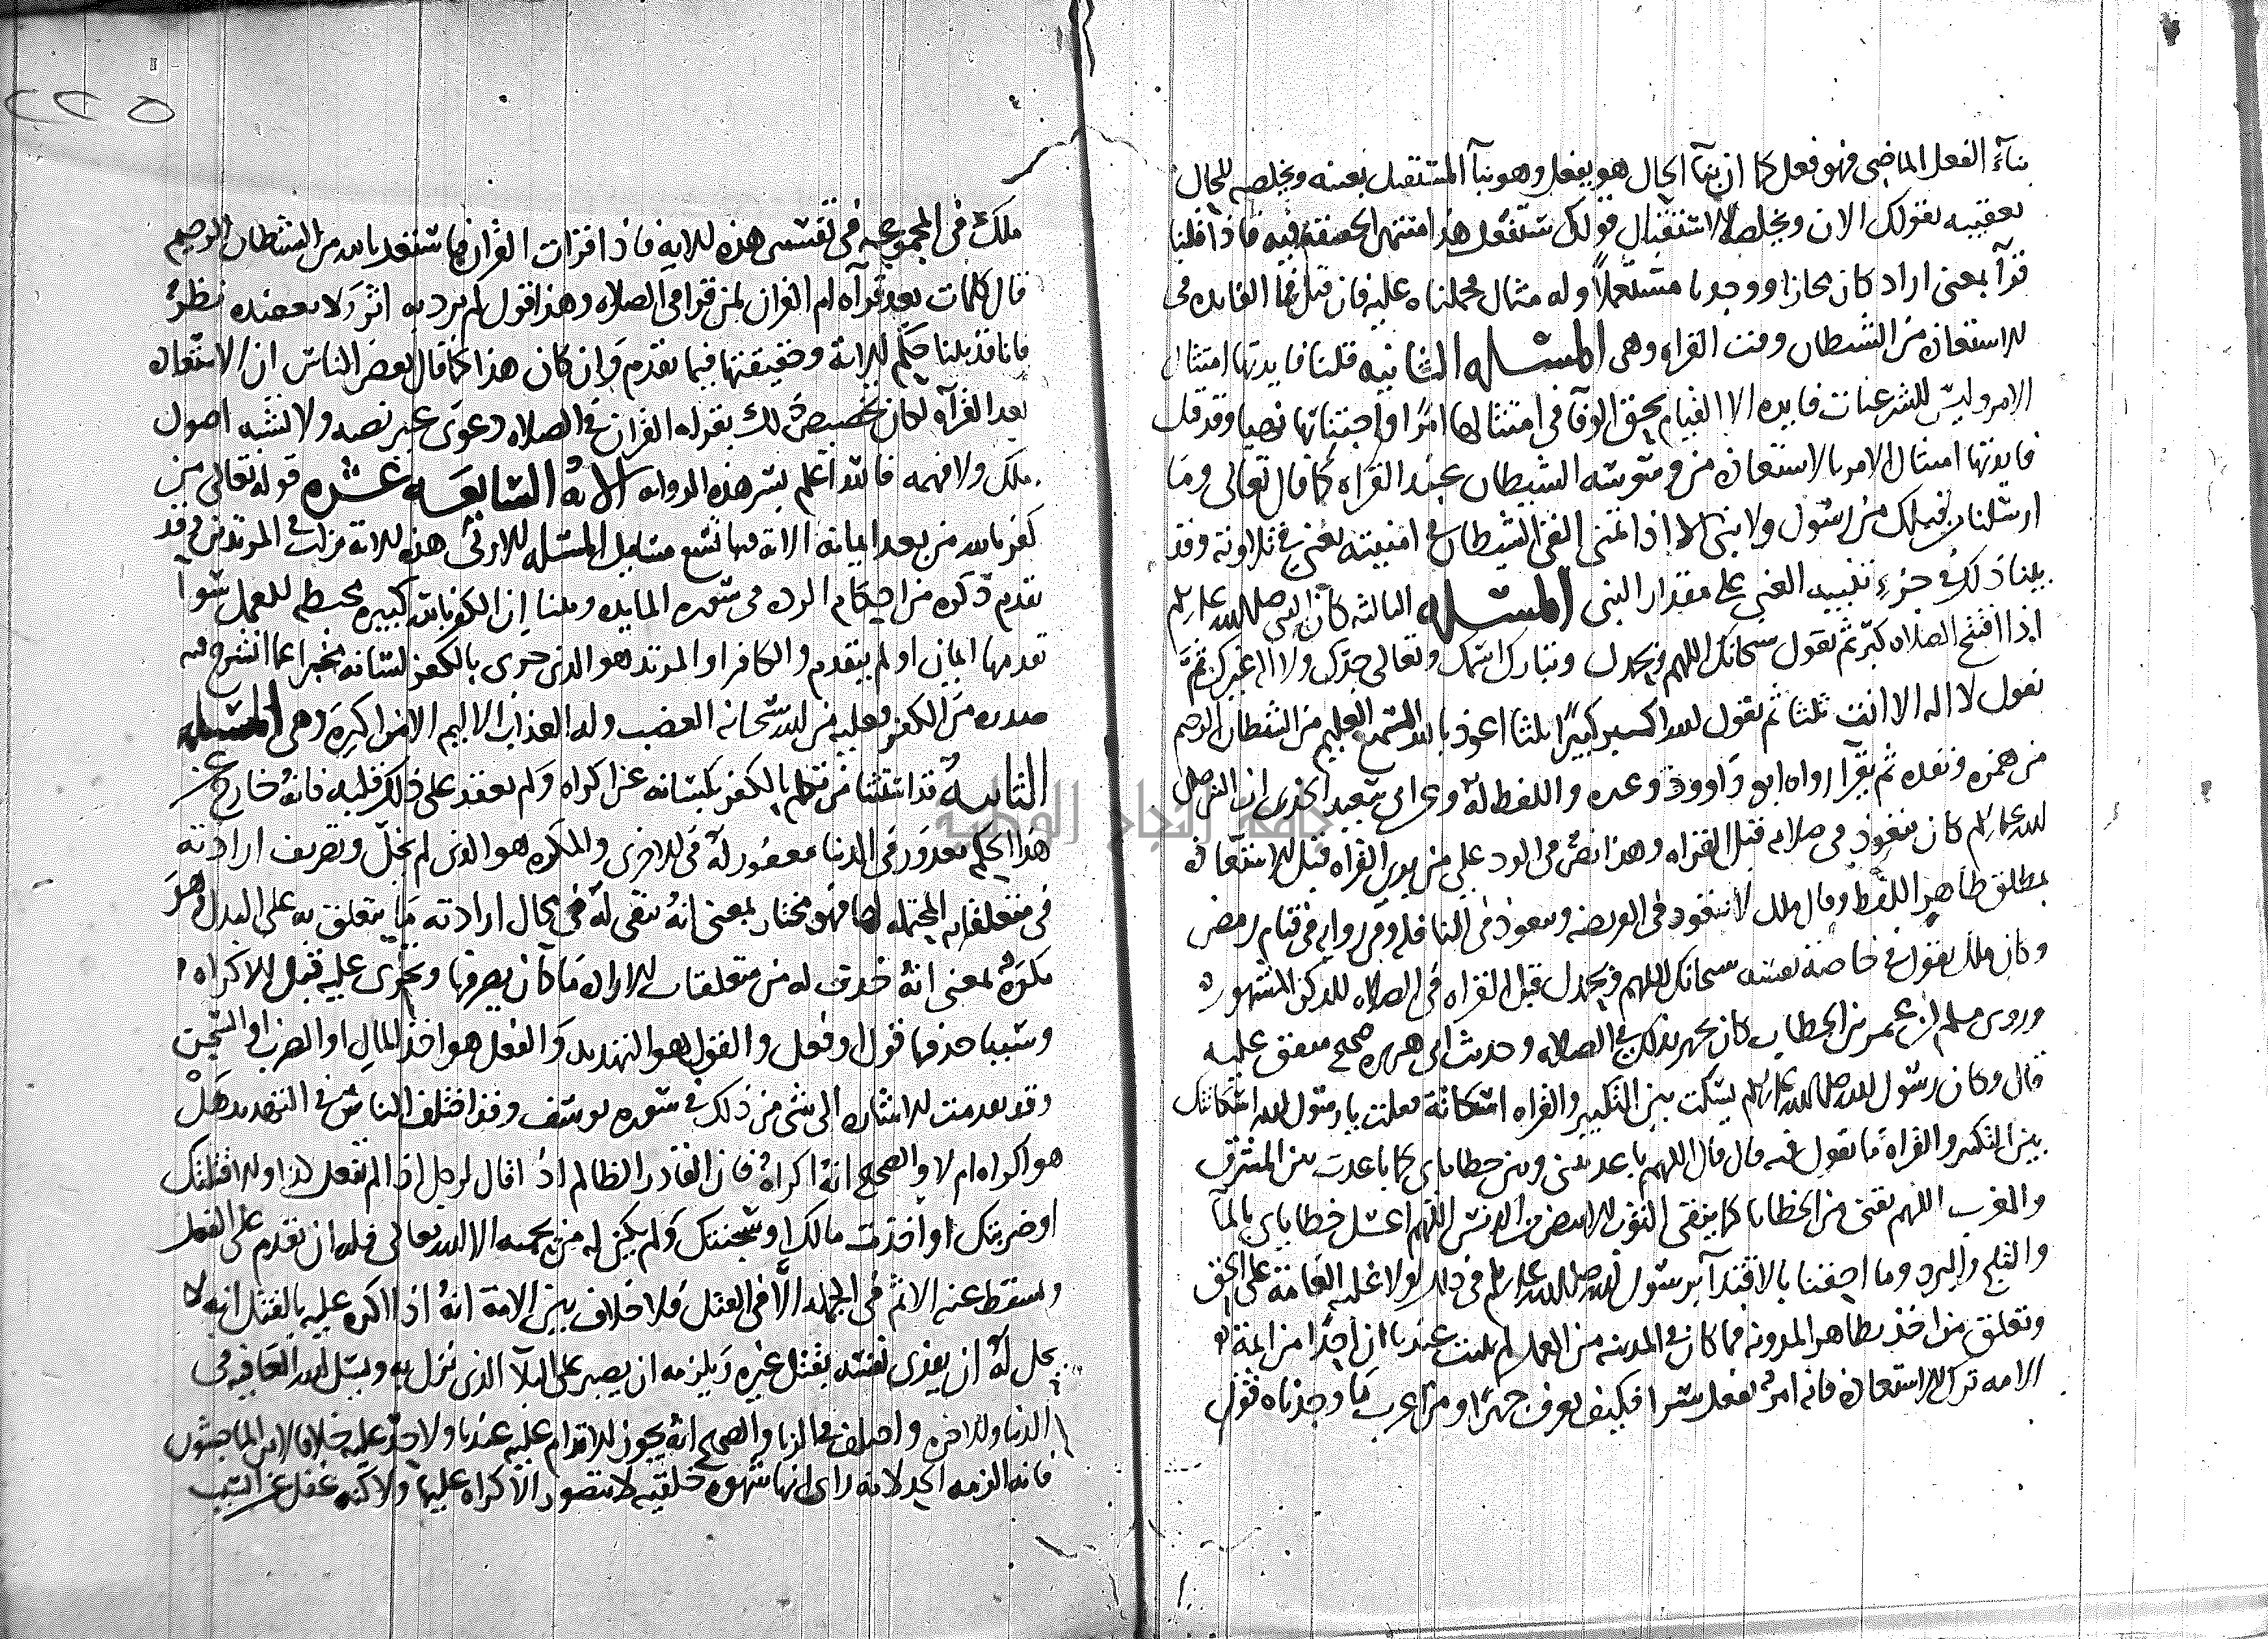 بناء الفعل الماضي فهو فعل كما ان بناء الحال هو يفعل وهو بناء المستقبل بعينه ويخلصه للحال
تعقيبه بقولك الان ويخلصه للاستقبال قولك ستفعل هذا منتهى الحقيقة فيه فاذا قلنا
قرأ بمعنى اراد كان مجازا ووجدنا مستعملا وله مثال فحملناه عليه فان قيل فما الفايده في
الاستعاذه من الشيطان وقت القراه وهي المسله الثانيه قلنا فايدتها امتثال
الامر وليس للشرعيات فايده الا القيام بحق الوفا في امتثالها امرا واجتنابها نهيا وقد قيل
فايدتها امتثال الامر بالاستعاذه من وسوسه الشيطان عند القراه كما قال تعالى وما
ارسلنا من قبلك من رسول ولا نبي الا اذا تمنى القى الشيطان في امنيته يعني في تلاوته وقد
بينا ذلك في جزء تنبيه الغبي على مقدار النبي المسله الثالثه كان النبي صلى الله عليه وسلم
اذا افتتح الصلاه كبر ثم يقول سبحانك اللهم وبحمدك وتبارك اسمك وتعالى جدك ولا اله غيرك ثم
يقول لا اله الا انت ثلثا ثم يقول الله اكبر كبيرا ثلثا اعوذ بالله السميع العليم من الشيطان الرجيم
من همزه ونفخه ثم يقرأ رواه ابو داوود وغيره واللفظ له وعن ابي سعيد الخدري ان النبي صلى
الله عليه وسلم كان يتعوذ في صلاته قبل القراه وهذا نص في الرد على من يرى القراه قبل الاستعاذه
بمطلق ظاهر اللفظ وقال ملك لا يتعوذ في الفريضه ويتعوذ في النافله وفي روايه في قيام رمضن
وكان ملك يقول في خاصة نفسه سبحانك اللهم وبحمدك قبل القراه في الصلاه للذكر المشهور
وروى مسلم ان عمر بن الخطاب كان يجهر بذلك في الصلاه وحديث ابي هريره صحيح متفق عليه
قال وكان رسول الله صلى الله عليه وسلم يسكت بين التكبير والقراه اسكاتة فقلت يا رسول الله اسكاتتك
بين التكبير والقراه ما تقول فيه قال قال اللهم باعد بيني وبين خطاياى كما باعدت بين المشرق
والمغرب اللهم نقني من الخطايا كما ينقى الثوب الابيض من الدنس اللهم اغسل خطاياي بالمآ
والثلج والبرد وما احقنا بالاقتدآ برسول الله صلى الله عليه وسلم في ذلك لولا غلبه العامة على الحق
وتعلق من اخذ بظاهر المدونه فما كان في المدينه من العمل لم يثبت عندنا ان احدا من ايمة
الامه ترك الاستعاذه فانه امر يفعل سرا فكيف يعرف جهرا ومن اغرب ما وجدناه قول
ملك في المجموعه في تفسير هذه الايه فاذا قرات القران فاستعذ بالله من الشيطان الرجيم
قال ذلك بعد قرآه ام القران لمن قرا في الصلاه وهذا قول لم يرد به اثر ولا يعضده نظر
فانا قد بينا حكم الاية وحقيقتها فيما تقدم وان كان هذا كما قال بعض الناس ان الاستعاذه
بعد القرآه لكان تخصيص ذلك بقراه القران في الصلاه دعوى عريضه ولا تشبه اصول
ملك ولا فهمه فالله اعلم بسر هذه الروايه الايه السابعه عشره قوله تعالى من
كفر بالله من بعد ايمانه الاية فيها تسع مسايل المسله الاولى هذه الاية نزلت في المرتدين وقد
تقدم ذكره من احكام الرده في سوره المايده وبينا ان الكفر بالله كبيره محبطه للعمل سوآ
تقدمها ايمان او لم يتقدم والكافر او المرتد هو الذى جرى بالكفر لسانه مخبرا عما انشرح به
صدره من الكفر فعليه من الله سبحانه الغضب وله العذاب الاليم الا من اكره وهي المسله
الثانيه قد استثنا من تكلم بالكفر بلسانه عن اكراه ولم يعقد على ذلك قلبه فانه خارج عن
هذا الحكم معذور في الدنيا مغفور له في الاخرى والمكره هو الذى لم يخل وتصريف ارادته
في متعلقاته المحتمله لها فهو مختار بمعنى انه بقى له في مجال ارادته ما يتعلق به على البدل وهو
مكره بمعنى انه حذف له من متعلقات الاراده ما كان يصرفها ويجرى عليه قبل الاكراه
وسببها حذفها قول او فعل والقول هو التهديد والفعل هو اخذ المال او الضرب او السجن
وقد تقدمت الاشاره الى شى من ذلك في سوره يوسف وقد اختلف الناس في التهديد هل
هو اكراه ام لا والصحيح انه اكراه فان القادر الظالم اذا قال لرجل اذا لم تفعل كذا والا قتلتك
او ضربتك او اخذت مالك او سجنتك ولم يكن له من يحميه الا الله تعالى فله ان يقدم على الفعل
ويسقط عنه الاثم في الجمله الا في القتل فلا خلاف بين الامة انه اذا اكره عليه بالقتل انه لا
يحل له ان يفدى نفسه بقتل غيره ويلزمه ان يصبر على البلآ الذى نزل به ويسل الله العافيه في
الدنيا والاخره واختلف في الزنا والصحيح انه يجوز الاقدام عليه عندنا ولا حد عليه خلافا لابن الماجشون
فانه الزمه الحد لانه راى انها شهوه خلقيه لا يتصور الاكراه عليها ولاكنه غفل عن السبب